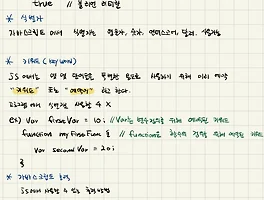 true // 불리언 리터럴
* 식별자
자바스크립트 에서 식별자는 영문자, 숫자, 언더스코어, 달러, 사용가능
* 키워드 (keyword)
JS 에서는 몇 몇 단어들을 특별한 용도로 사용하기 위해 미리 예약
"키워드" 또는 "예약어" 라고 한다.
프로그램에서 식별자로 사용할 수 X
ex) Var firstVar = 10; // Var는 변수정의를 위해 예약된 키워드
function myFirstFunc { // function은 함수의 정의를 위해 예약된 키워드
Var secondVar = 20;
}
* 자바스크립트
JS에서 사용할 수 있는